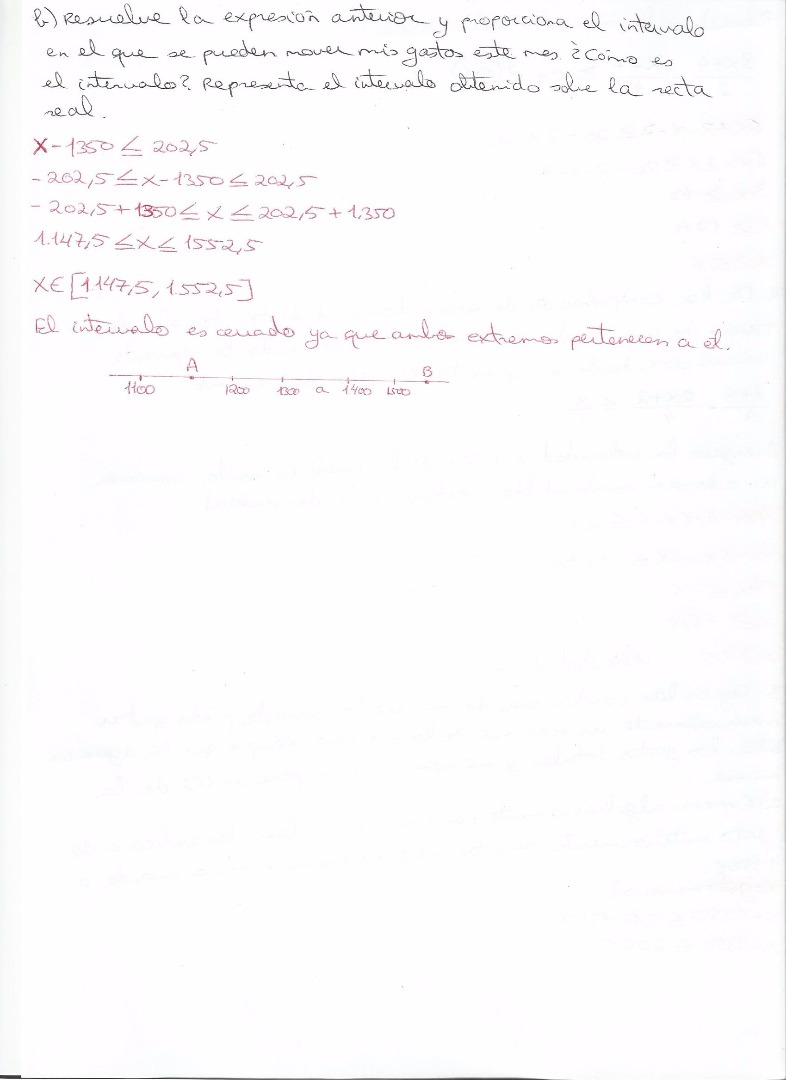 b) Resuelve la expresión anterior y proporciona el intervalo
en el que se pueden mover mis gastos este mes. ¿Cómo es
el intervalo?. Representa el intervalo obtenido sobre la recta
real.
X - 1350 ≤ 202,5
- 202,5 ≤ x - 1350 ≤ 202,5
- 202,5 + 1350 ≤ x ≤ 202,5 + 1.350
1.147,5 ≤ x ≤ 1552,5
X ∈ [1.147,5, 1.552,5]
El intervalo es cerrado ya que ambos extremos pertenecen a el.
A B
1100 1200 1300 a 1400 1500